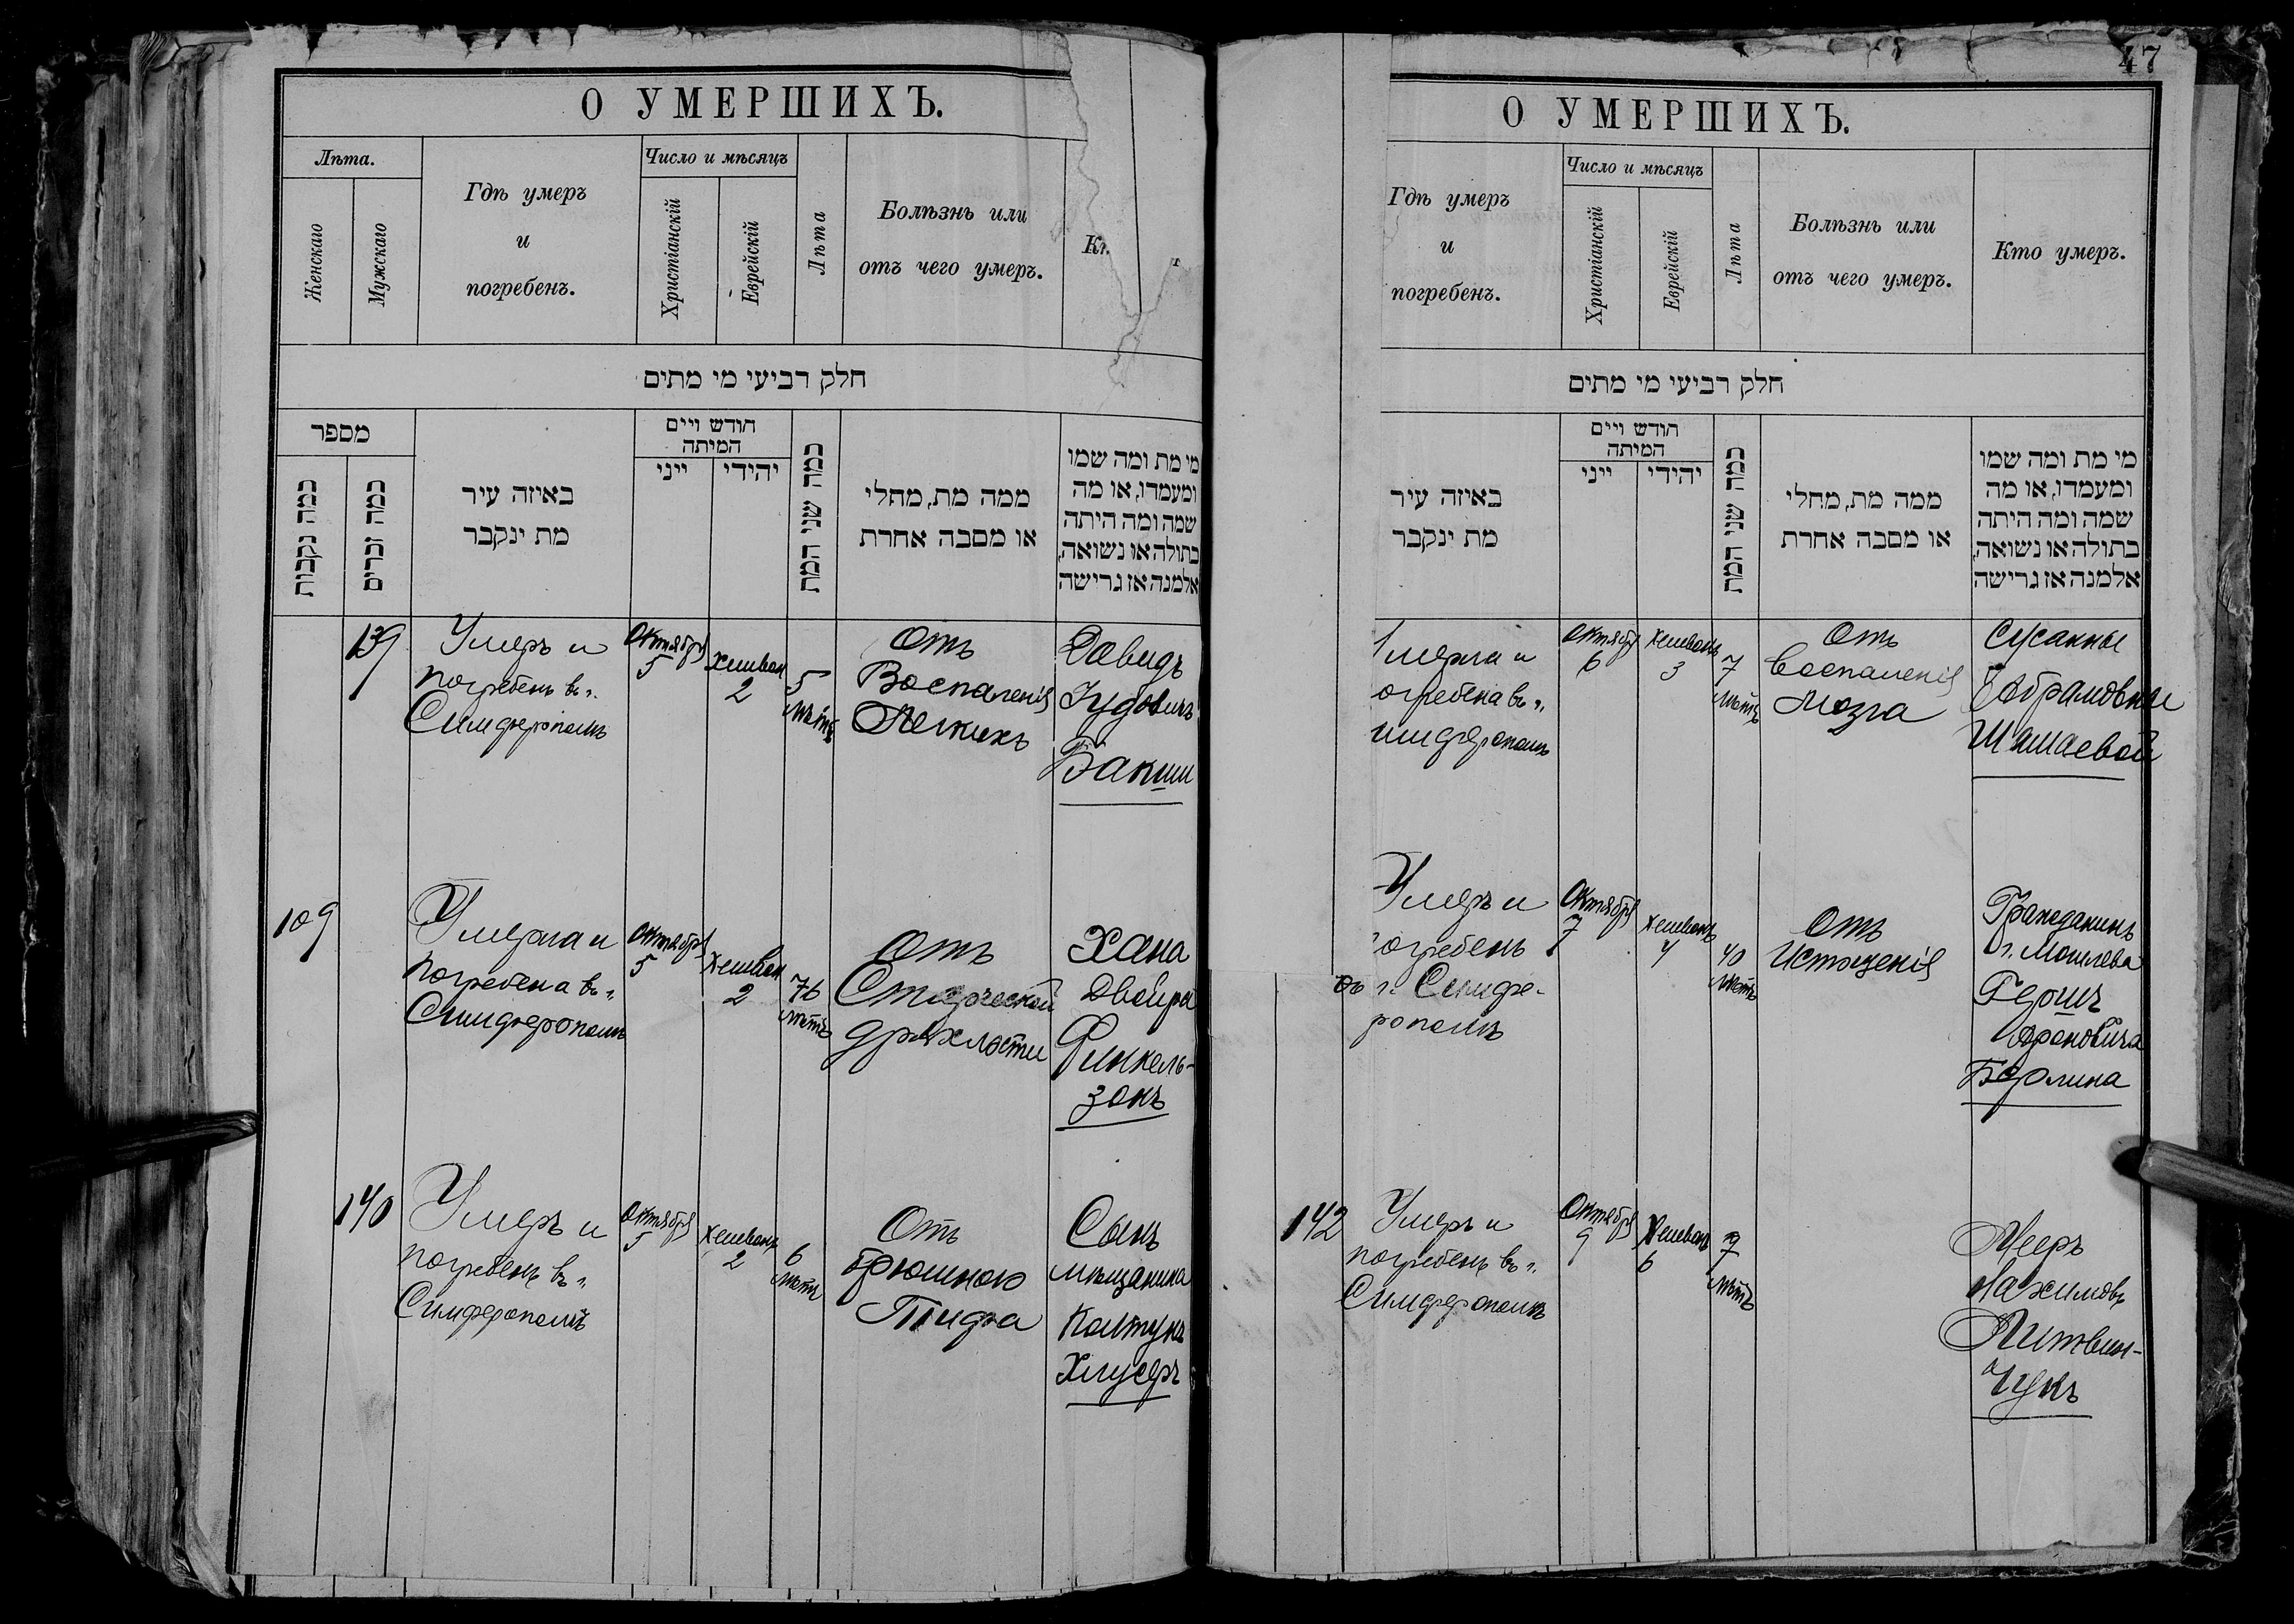 О УМЕРШИХЪ.
Лѣта.
Женскаго
Мужскаго
Гдѣ умеръ
и
погребенъ.
Число и мѣсяцъ
Христіанскій
Еврейскій
Лѣта
Болѣзнь или
отъ чего умеръ.
חלק רביעי מי מתים
מספר
כמה נקבות
כמה זכרים
באיזה עיר
מת ינקבר
חודש ויים
המיתה
ייני
יהידי
כמה שני המת
ממה מת, מחלי
או מסבה אחרת
מי מת ומה שמו
ומעמדו, או מה
שמה ומה היתה
בתולה או נשואה,
אלמנה אז גרישה
139
Умеръ и
погребенъ в г.
Симферополѣ
Октября
5
Хешван
2
5
лѣтъ
Отъ
Воспаленія
Легкихъ
Давидъ
Іудовичъ
Бакши
109
Умерла и
погребена въ г.
Симферополѣ
Октября
5
Хешван
2
76
лѣтъ
Отъ
Старческой
дряхлости
Хана
Двойра
Финкель-
зонъ
140
Умеръ и
погребенъ въ г.
Симферополѣ
Октября
5
Хешванъ
2
6
лѣтъ
Отъ
брюшного
Тифа
Сынъ
мѣщанина
Колтунъ
Хлусеръ
47
О УМЕРШИХЪ.
Гдѣ умеръ
и
погребенъ.
Число и мѣсяцъ
Христіанскій
Еврейскій
Лѣта
Болѣзнь или
отъ чего умеръ.
Кто умеръ.
חלק רביעי מי מתים
באיזה עיר
מת ינקבר
חודש ויים
המיתה
ייני
יהידי
כמה שני המת
ממה מת, מחלי
או מסבה אחרת
מי מת ומה שמו
ומעמדו, או מה
שמה ומה היתה
בתולה או נשואה,
אלמנה אז גרישה
мерла и
огребена въ г.
имферополѣ
Октября
6
Хешванъ
3
7
лѣтъ
Отъ
воспаленія
Мозга
Сусанны
Абрамовны
Шамаевой
Умеръ и
огребенъ
въ г. Симфе-
рополѣ
Октября
7
Хешванъ
4
40
лѣтъ
Отъ
Истощенія
Гражданинъ
г. Могилева
Гершъ
Ароновича
Берлина
142
Умеръ и
погребенъ въ г.
Симферополѣ
Октября
9
Хешванъ
6
7
лѣтъ
Мееръ
Нахимовъ
Литвин-
чукъ